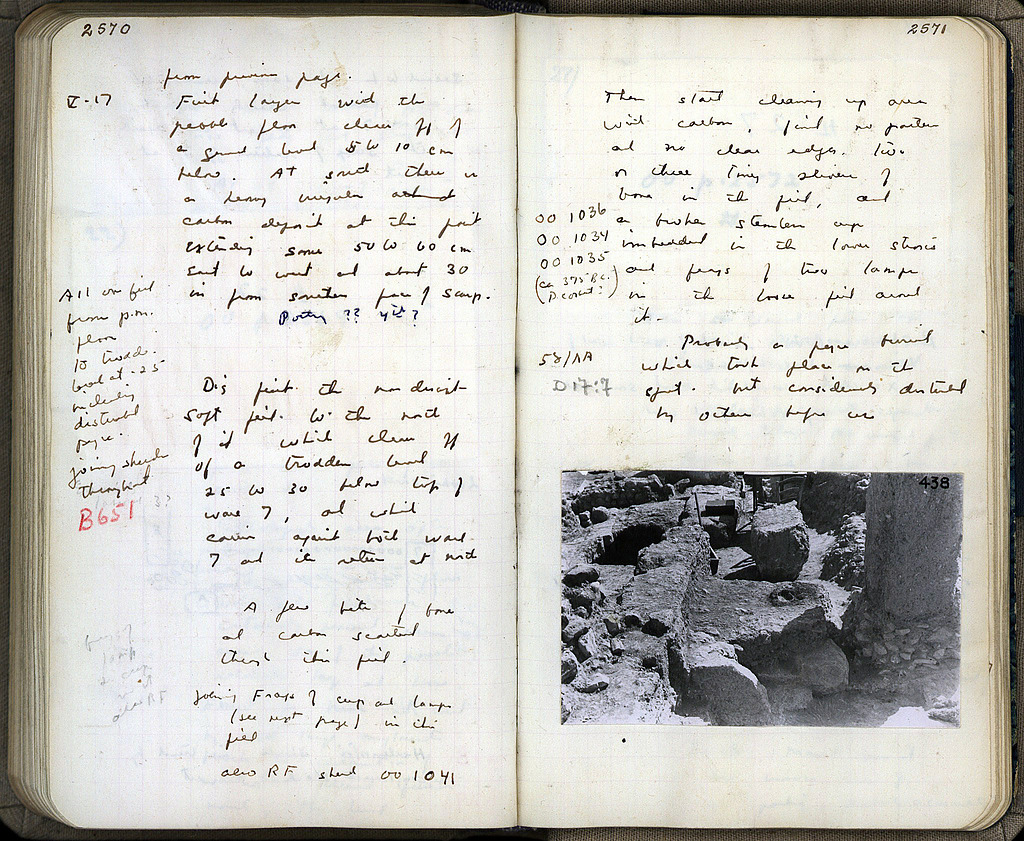 2570
from previous page.
V-17
First layer with the
pebble floor clears off
a ground level 5 to 10 cm
below. At south there is
a heavy irregular
carbon deposit at this point
extending some 50 to 60 cm
east to west and about 30
in from southern face of scarp.
Pottery ?? 4th ?
All one fill
from p.m.
floor
to trodd.
level at -25
including
disturbed
pyre.
joining sherds
throughout
B651
Dig first the
soft fill to the north
of it which clears off
of a trodden level
25 to 30 below top of
7, and which
carries against both
7 and its return at north
A few bits of bone
and carbon scattered
through this fill.
joining Frags of cup and lamps
(see next page) in this
fill
also RF sherd 00 1041
2571
Then start cleaning up area
with carbon, find no pattern
and no clear edges. Two
or three tiny slivers of
bone in the fill, and
00 1036
a broken stemless cup
00 1034
imbedded in the lower strosis
00 1035
(ca 375 B.C.
and frags of two lamps
in the loose fill around
it.
Probably a pyre burial
58/AA
which took place on the
D 17:7
spot. but considerably disturbed
by others before us
438